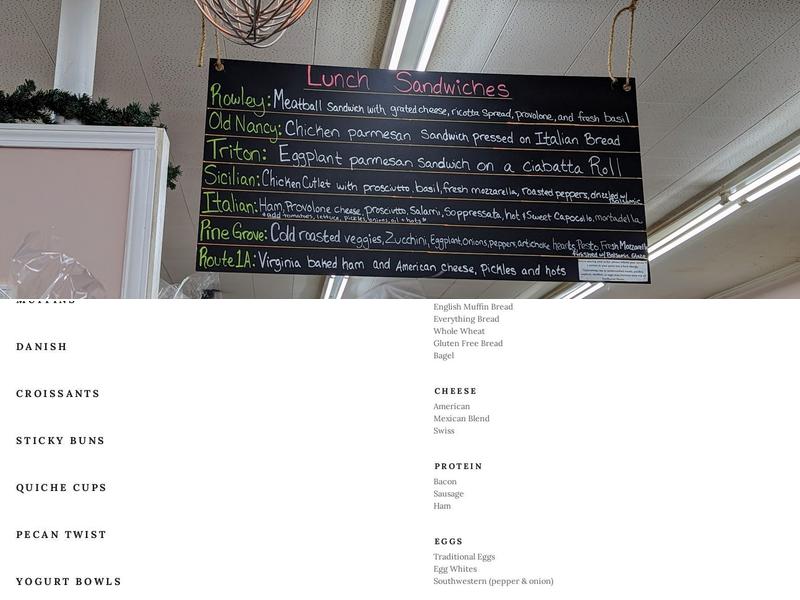 Lunch Sandwiches
Rowley: Meatball Sandwich with grated cheese, ricotta spread, provolone, and fresh basil
Old Nancy: Chicken parmesan Sandwich pressed on Italian Bread
Triton: Eggplant parmesan Sandwich on a Ciabatta Roll
Sicilian: Chicken Cutlet with prosciutto, basil, fresh mozzarella, roasted peppers, drizzled w/
Balsamic
Italian: Ham, Provolone cheese, prosciutto, Salami, Soppressata, hot & Sweet Capocollo, mortadella
*add tomatoes, lettuce, pickles, onions, oil + hots*
Pine Grove: Cold roasted veggies, Zucchini, Eggplant, onions, peppers, artichoke hearts, Pesto, Fresh Mozzarella
finished w/ Balsamic Glaze
Route 1A: Virginia baked ham and American cheese, Pickles and hots
MUFFINS
DANISH
CROISSANTS
STICKY BUNS
QUICHE CUPS
PECAN TWIST
YOGURT BOWLS
English Muffin Bread
Everything Bread
Whole Wheat
Gluten Free Bread
Bagel
CHEESE
American
Mexican Blend
Swiss
PROTEIN
Bacon
Sausage
Ham
EGGS
Traditional Eggs
Egg Whites
Southwestern (pepper & onion)